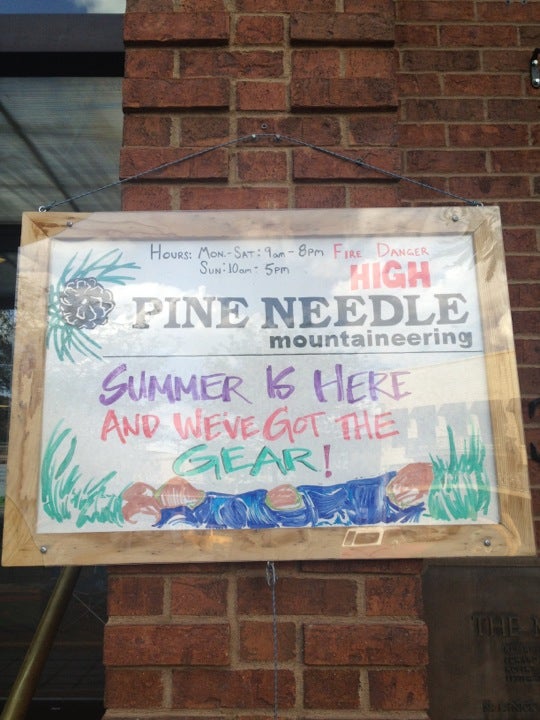 HOURS: MON.-SAT: 9am - 8pm
SUN: 10am - 5pm
FIRE DANGER
HIGH
PINE NEEDLE
mountaineering
SUMMER IS HERE
AND WE'VE GOT THE
GEAR!
THE